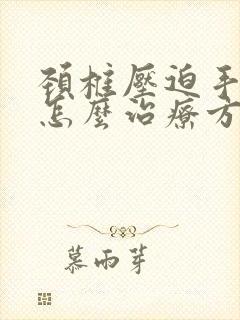 頚椎壓迫手
怎麼治療方
慕雨芽